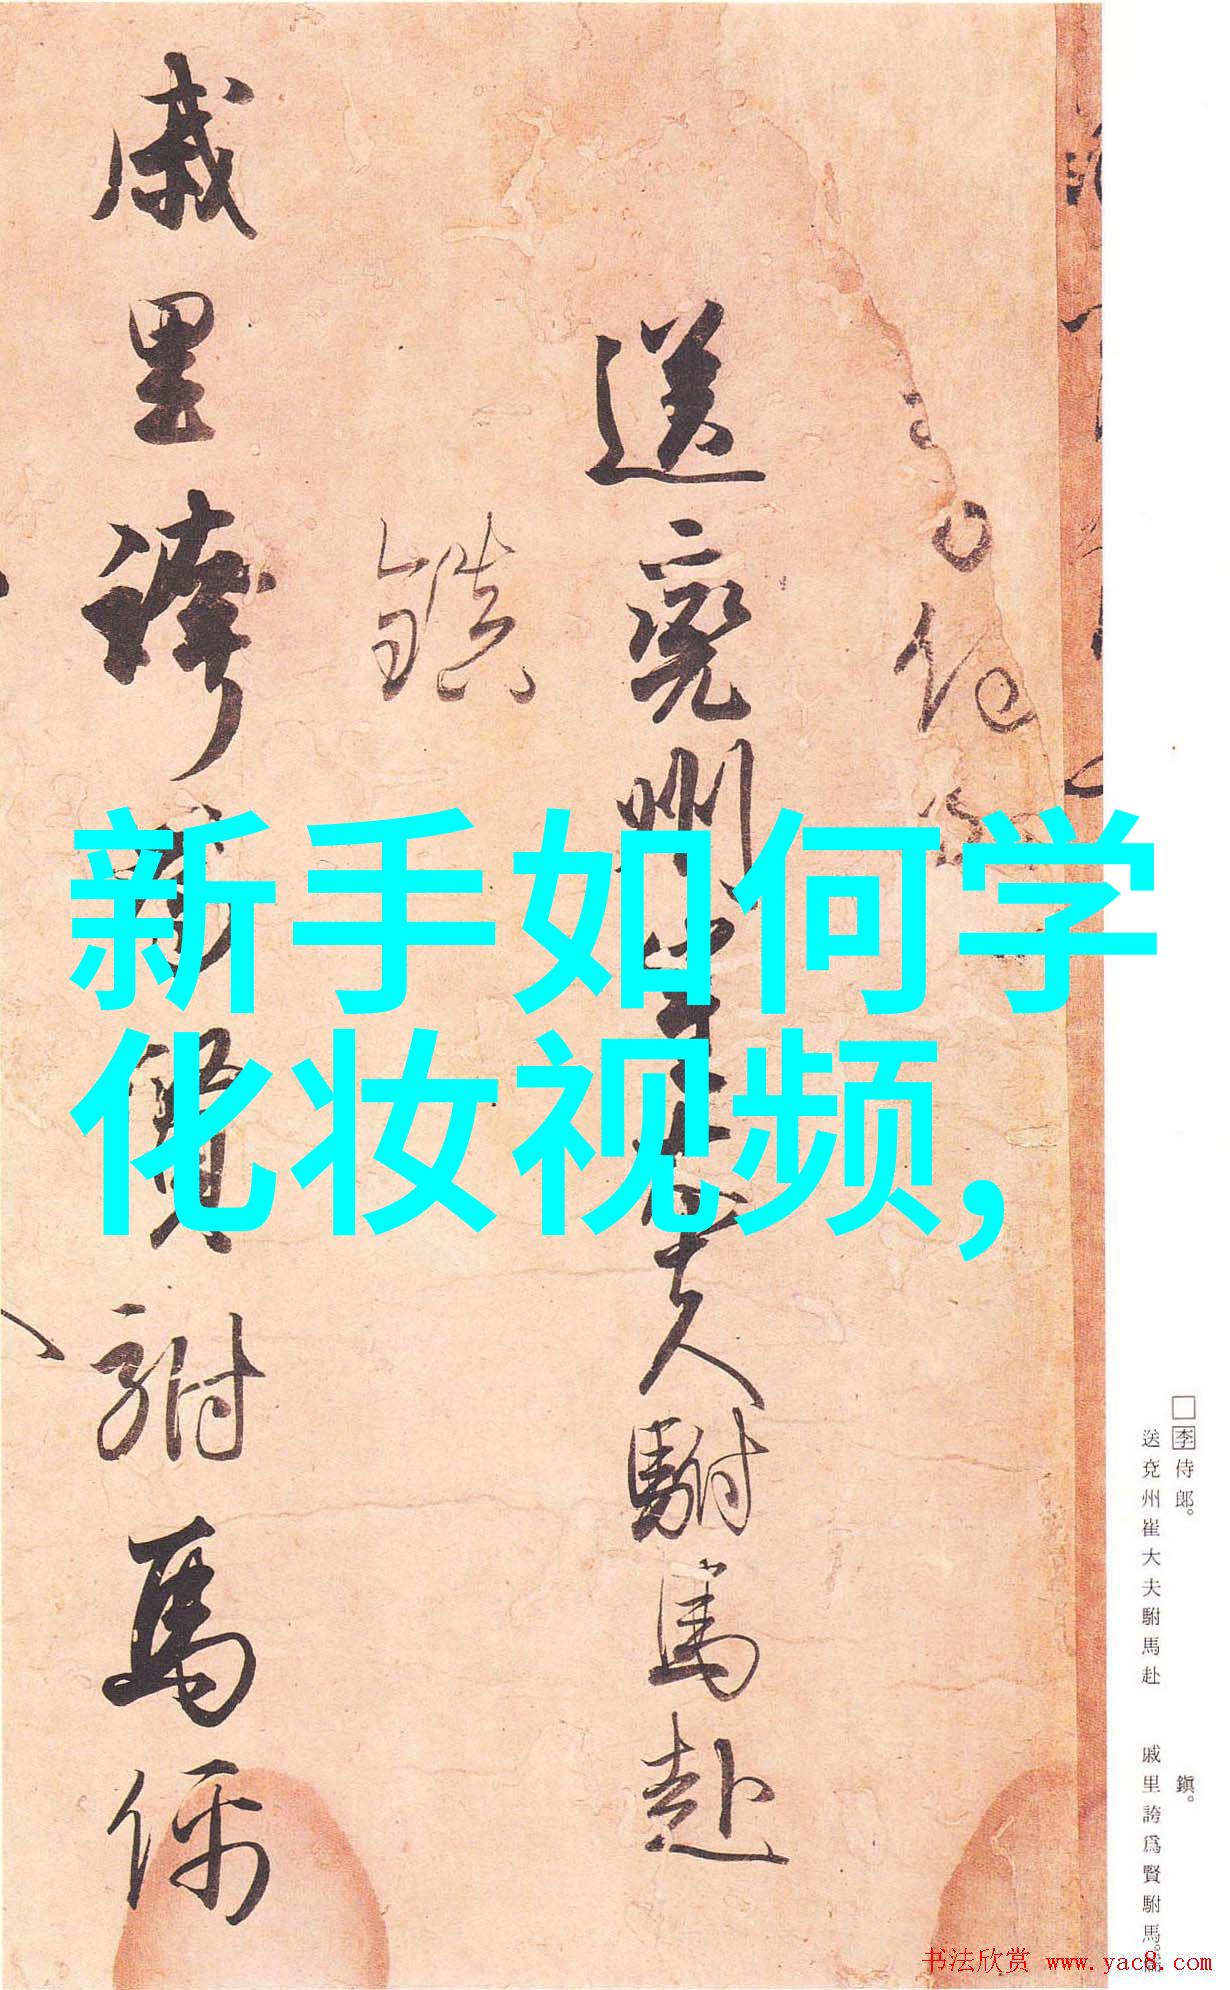 新手如何学
化妆视频,
送兖州崔大夫駙馬赴
鎮
戚里誇為賢駙馬儒
□李侍郎。
送兗州崔大夫駙馬赴
鎭。
戚里誇爲賢駙馬。儒
书法欣赏 www.yac8.com